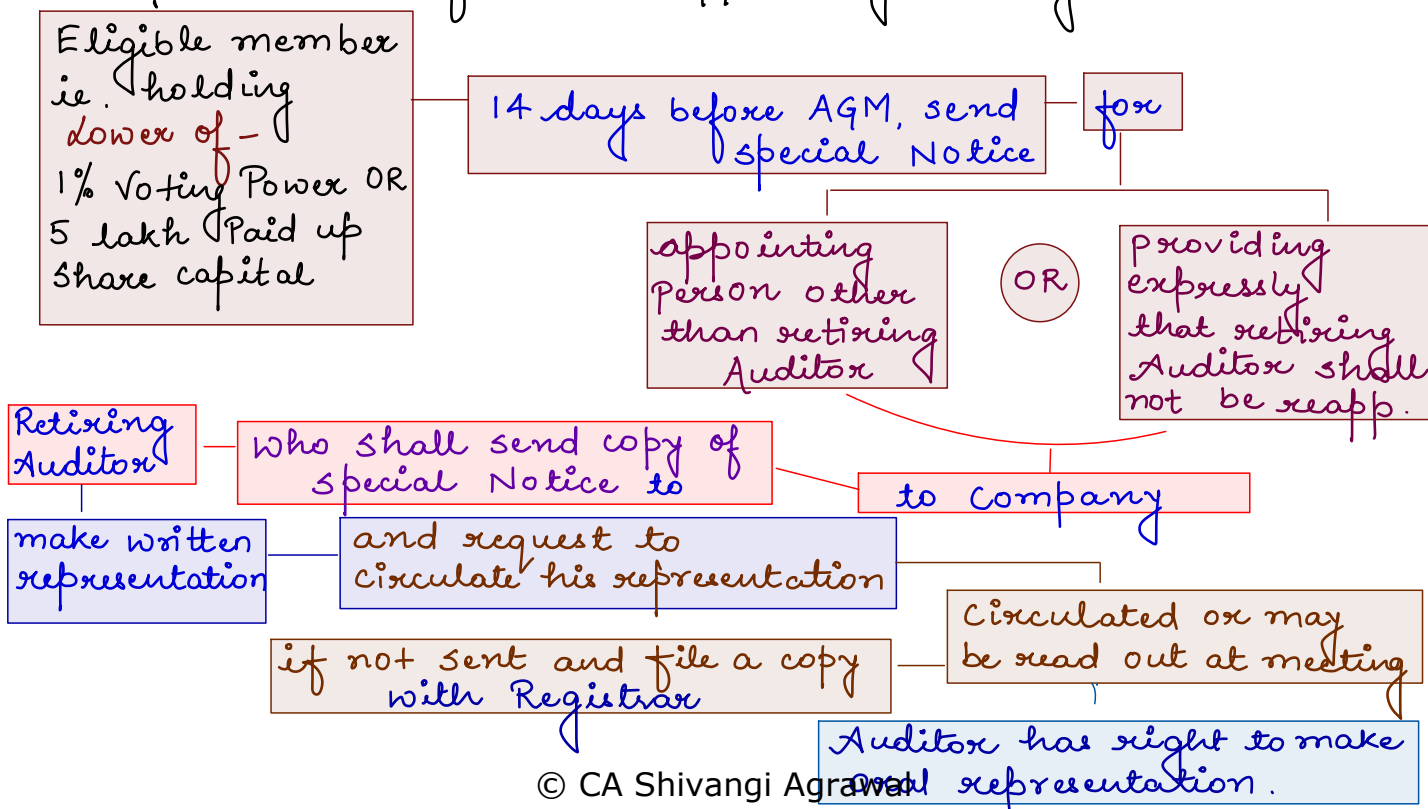 Eligible member
ie. holding
Lower of -
1% Voting Power OR
5 lakh Paid up
Share capital
14 days before AGM, send
special Notice
for
appointing
Person other
than retiring
Auditor
OR
providing
expressly
that retiring
Auditor shall
not be reapp.
Retiring
Auditor
who shall send copy of
special Notice to
to Company
make written
representation
and request to
circulate his representation
Circulated or may
be read out at meeting
if not sent and file a copy
with Registrar
Auditor has right to make
oral representation.
© CA Shivangi Agrawal